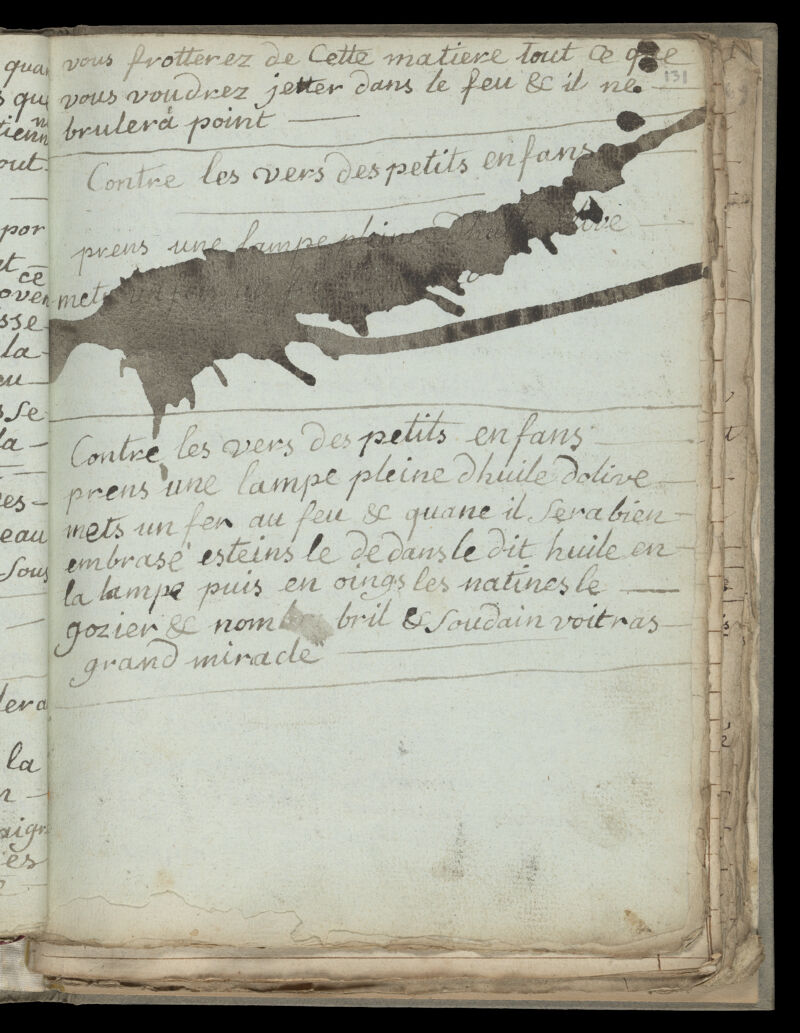 vous frotterez de Cette matiere tout ce que
131
vous voudrez jetter dans le feu & il ne
brulera point
Contre les vers des petits enfans
prens une lampe pleine dhuile dolive
mets un fer
Contre les vers des petits enfans
prens une lampe pleine dhuile dolive
mets un fer au feu & quane il sera bien
embrasé esteins le dedans le dit huile en
la lampe puis en oings les natines le
gozier & nom bril & soudain voitras
grand miracle
quan
s qu
tienn
out
por
t ce
over
sse
la
eu
s se
la
es
eau
sous
lera
la
n
aigr
es